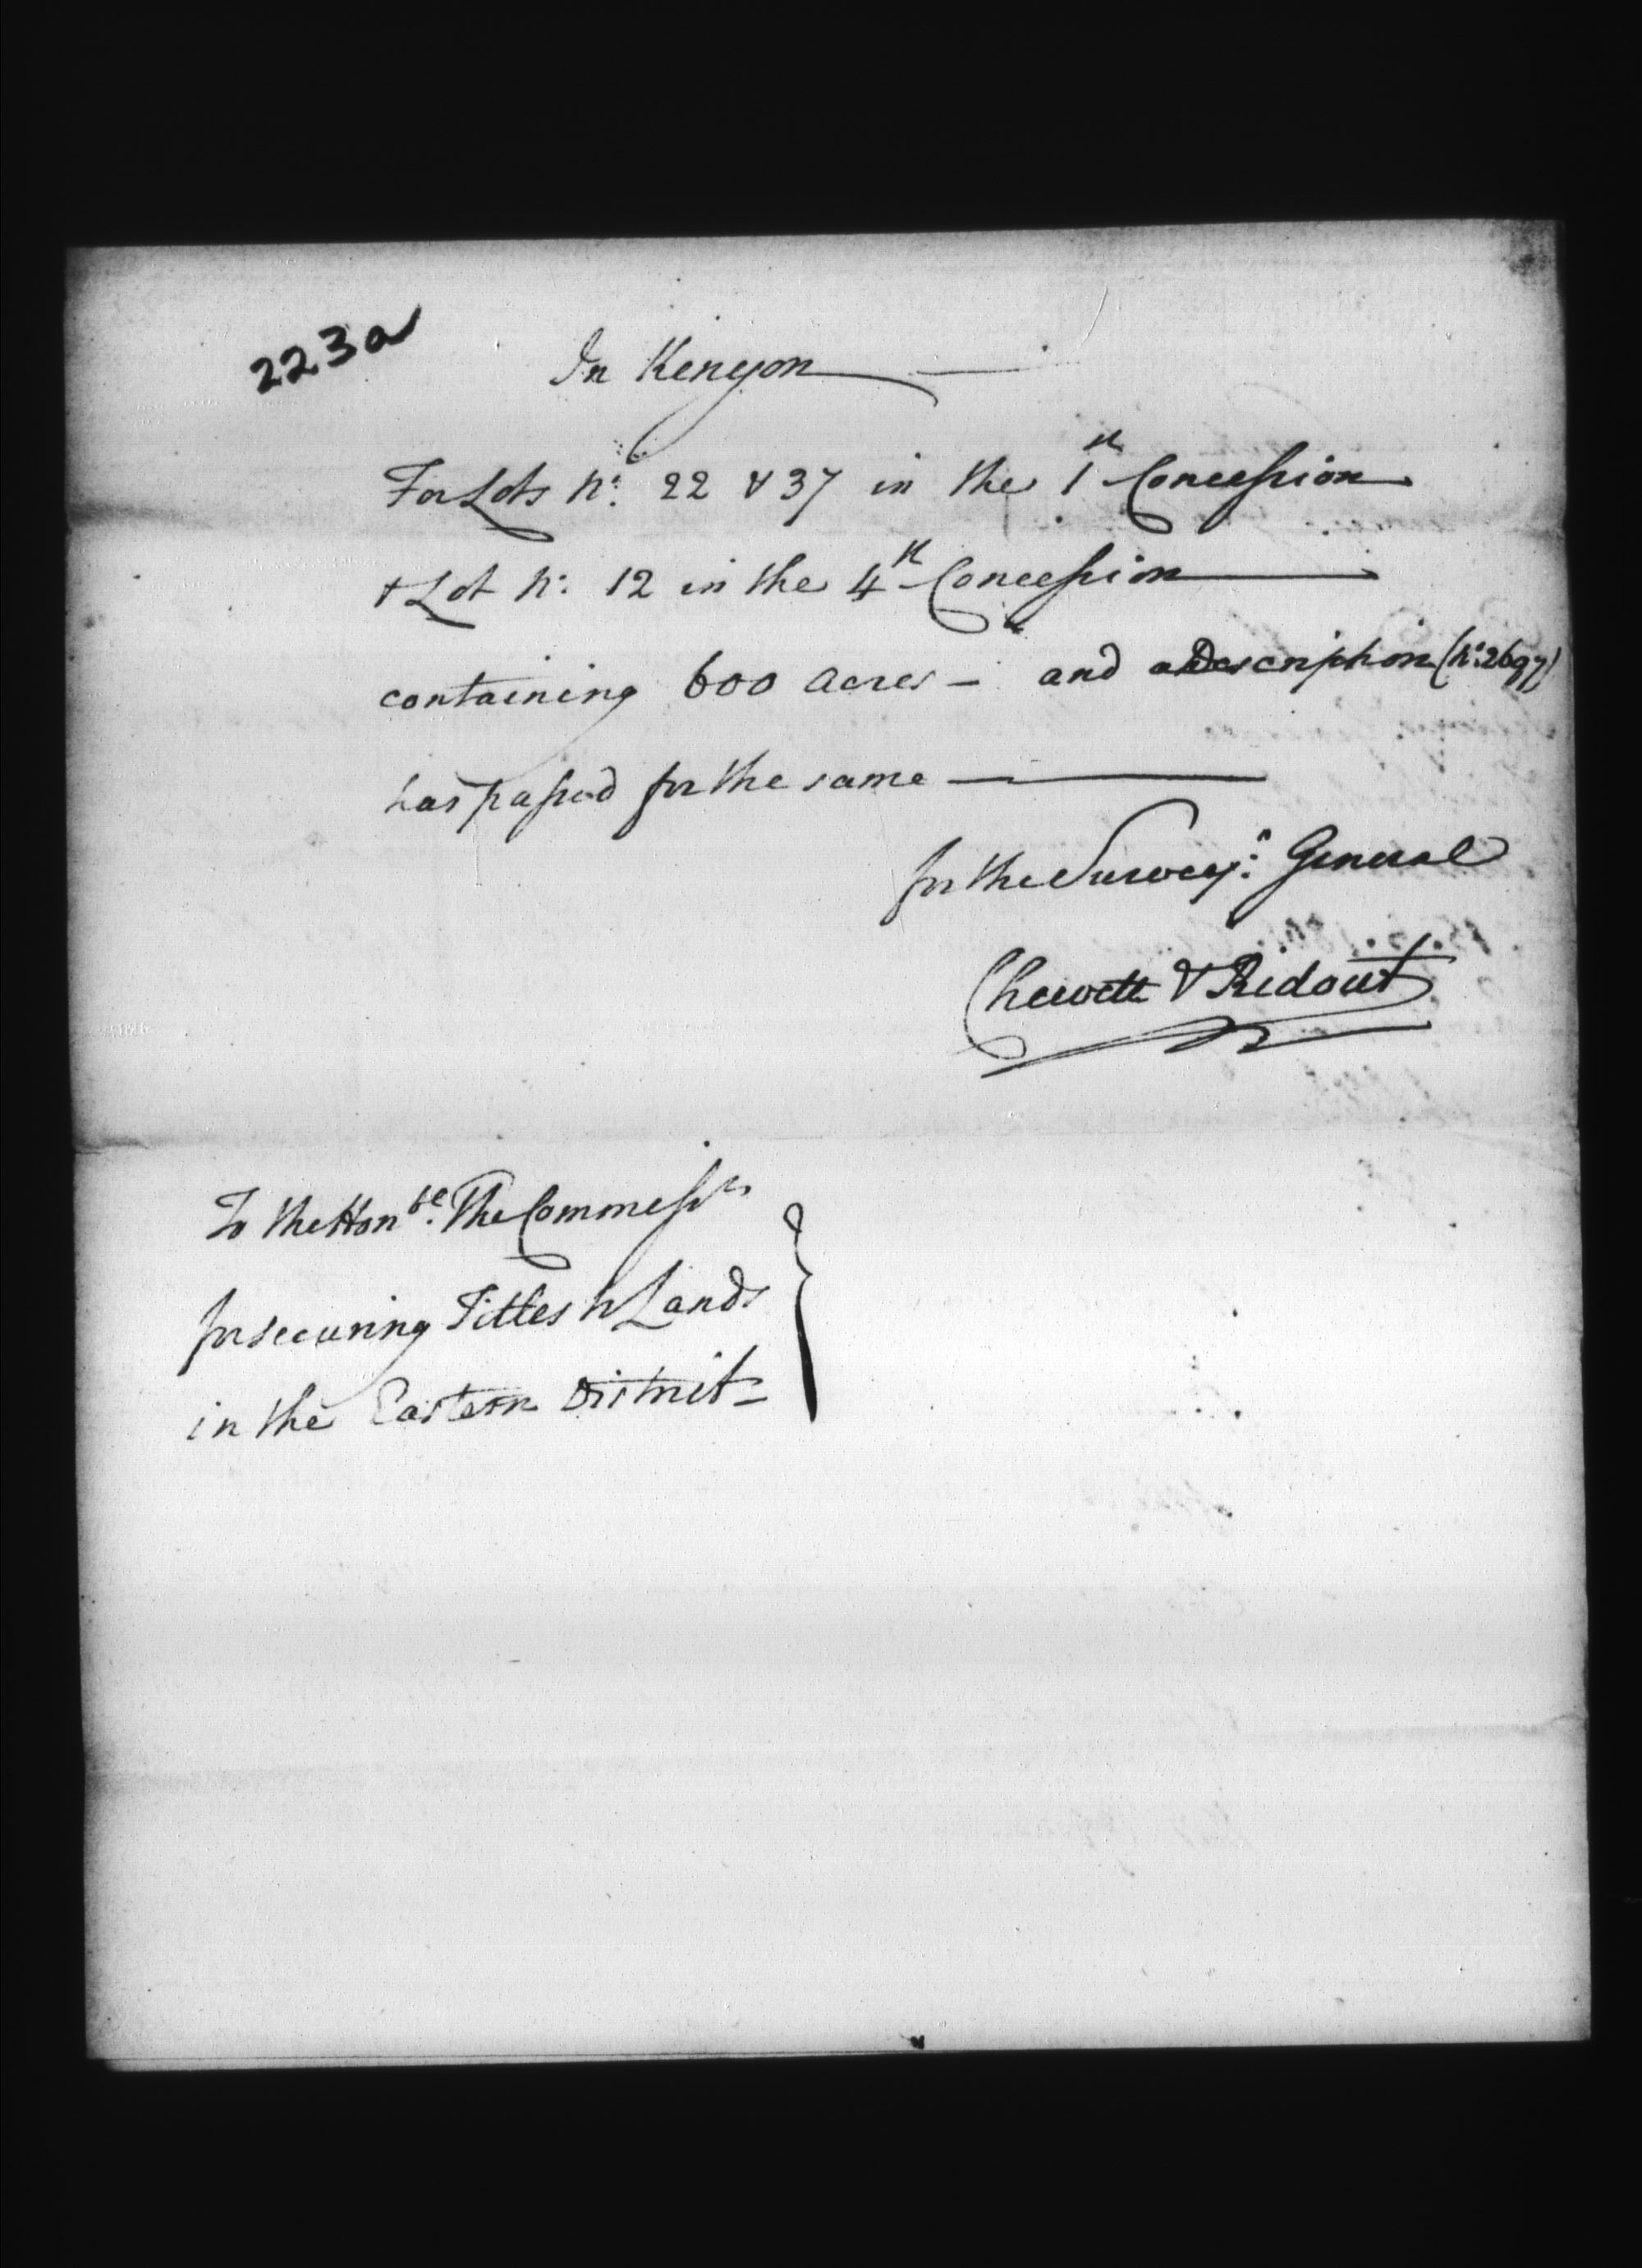 223a
In Kenyon
For Lots No: 22 & 37 in the 1st Concession
& Lot No: 12 in the 4th Concession
containing 600 acres - and a Description (No: 2697)
has passed for the same
for the Survey.r General
Chewett & Ridout
To the Honble. The Commissrs
for securing Titles to Lands
in the Eastern District -